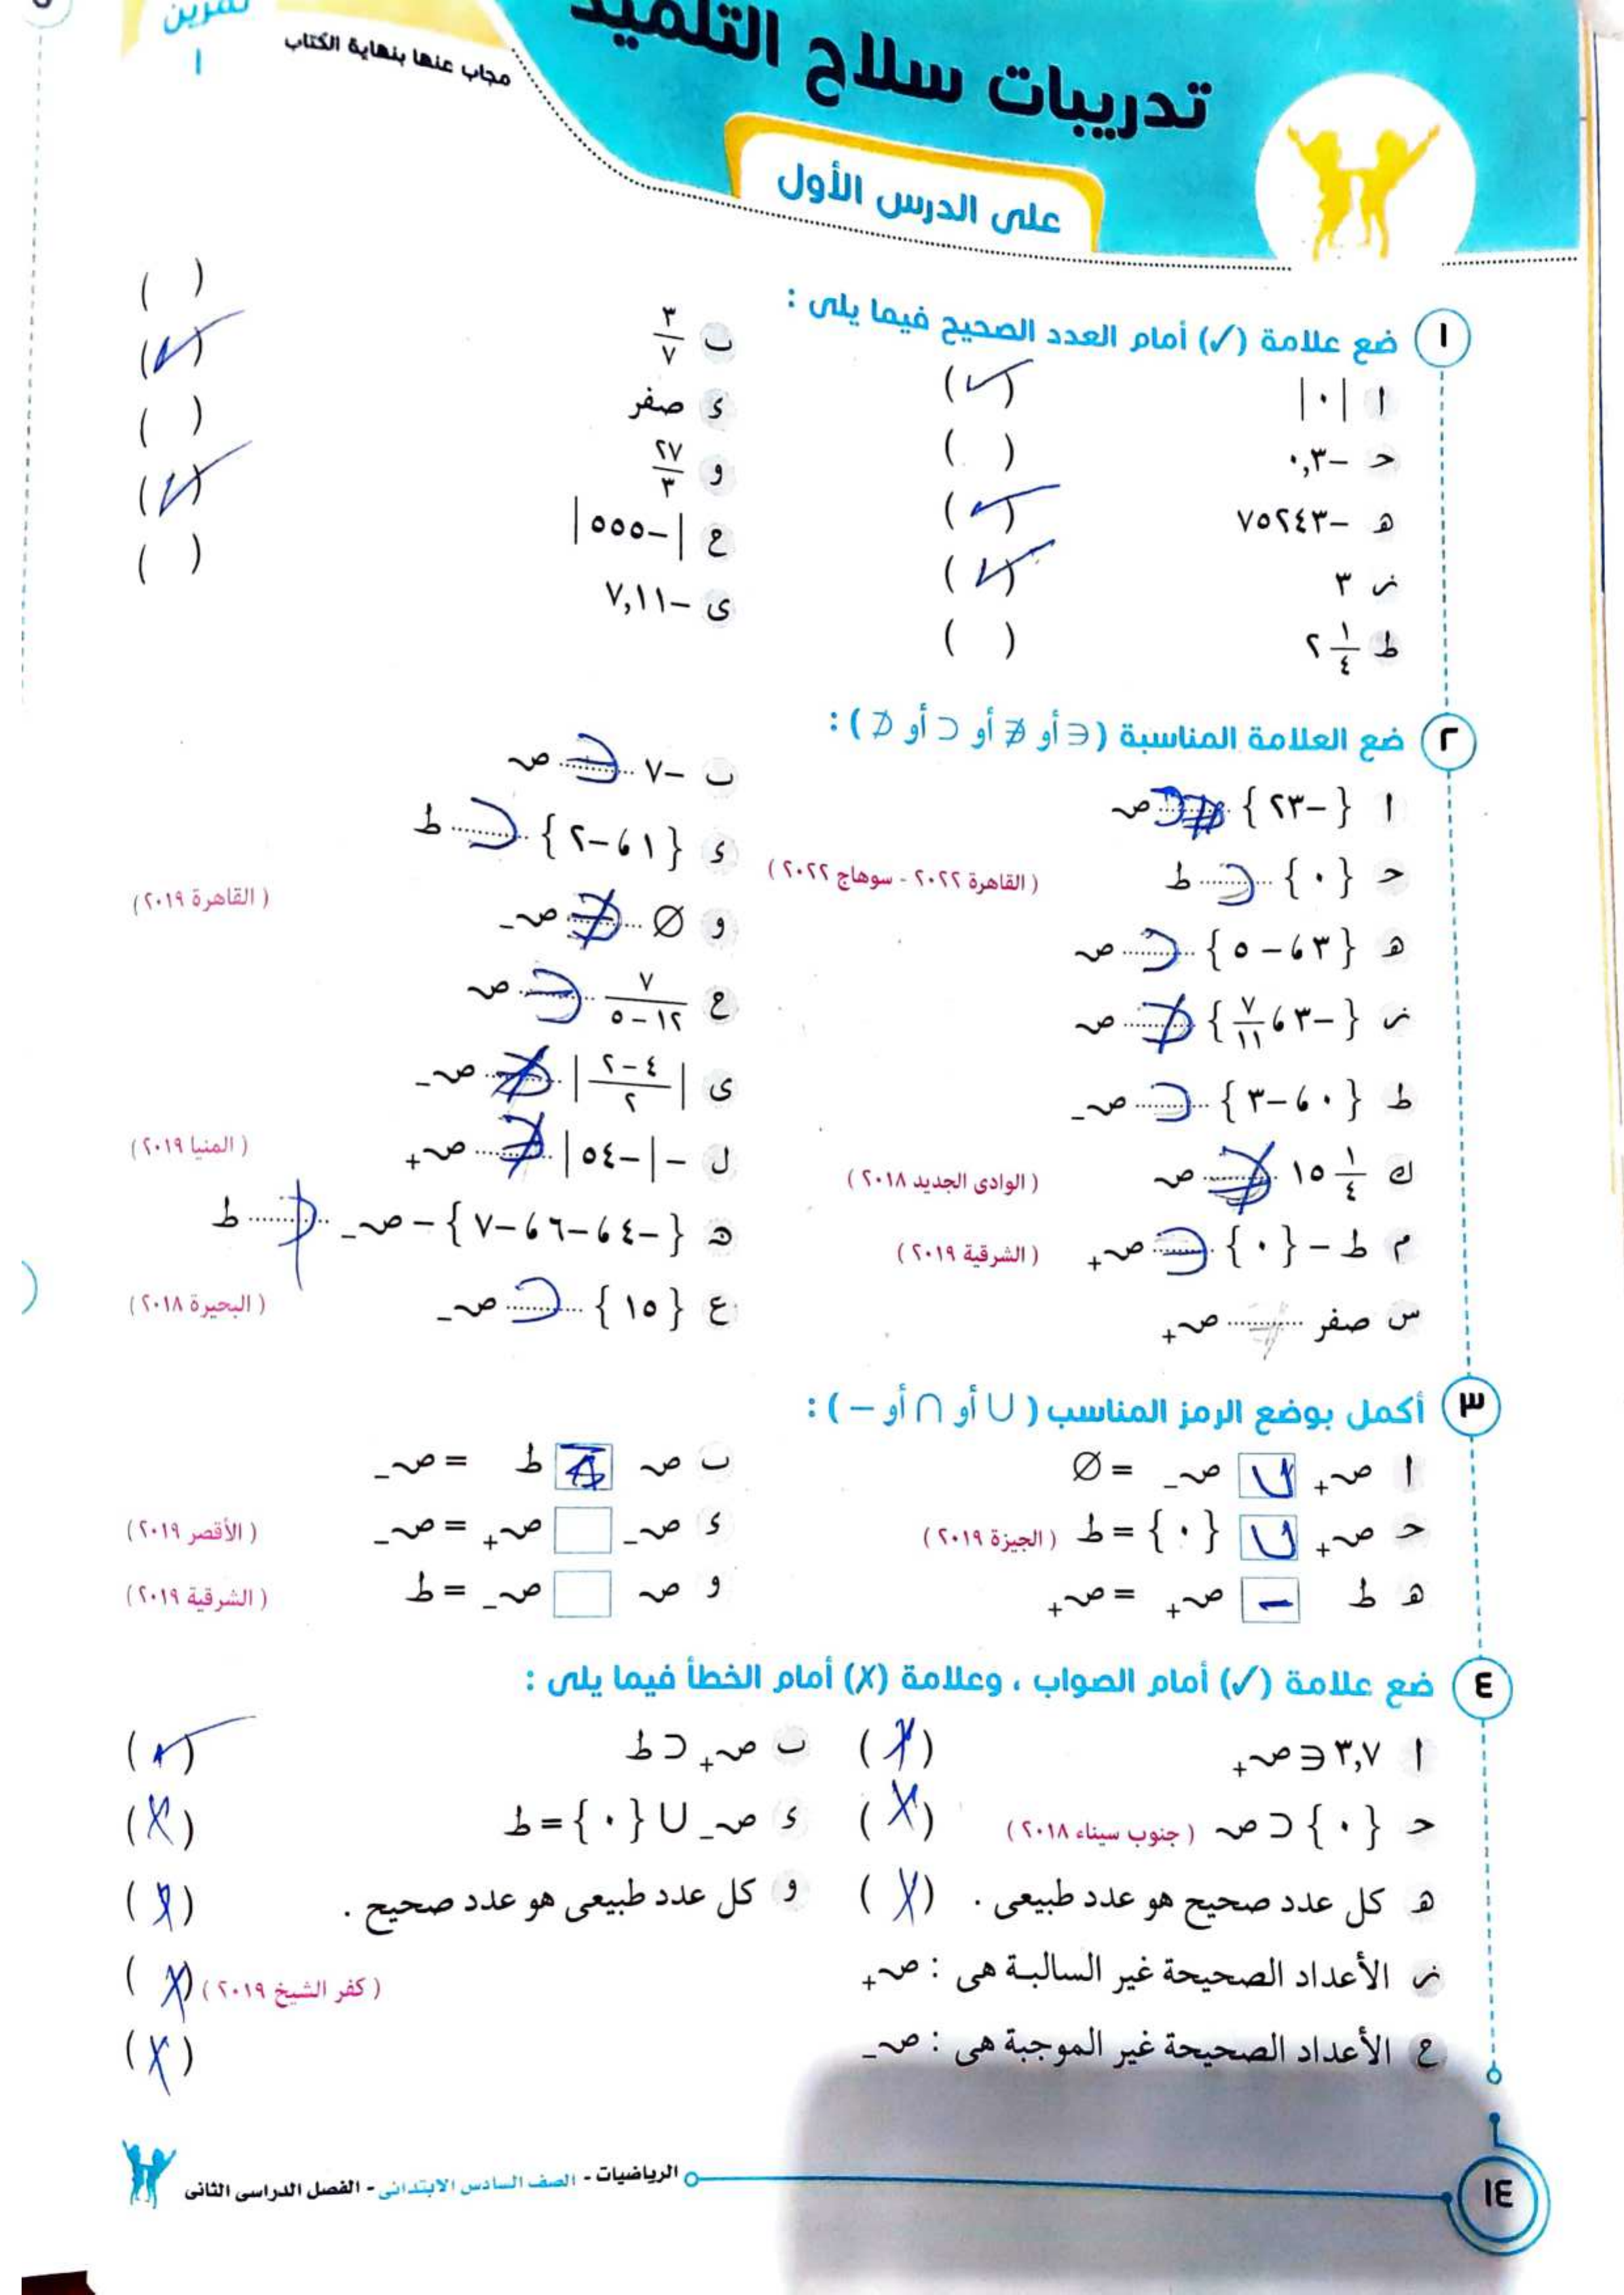 تمرين
١
مجاب عنها بنهاية الكتاب
تدريبات سلاح التلميذ
على الدرس الأول
١ ضع علامة (✓) أمام العدد الصحيح فيما يلى :
ا |٠| (✓)
ب ٣/٧ ( )
حـ -٠,٣ ( )
ء صفر (✓)
هـ -٧٥٢٤٣ (✓)
و ٢٧/٣ ( )
ز ٣ (✓)
ح |-٥٥٥| (✓)
ط ٢ ١/٤ ( )
ى -٧,١١ ( )
٢ ضع العلامة المناسبة (∈ أو ∉ أو ⊂ أو ⊄) :
ا {-٢٣} ........ صـ
ب -٧ ∈ صـ
حـ {٠} ⊂ ط (القاهرة ٢٠٢٢ - سوهاج ٢٠٢٢)
ء {١ ، -٢} ⊂ ط (القاهرة ٢٠١٩)
هـ {٣ ، -٥} ⊂ صـ
و ∅ ........ صـ-
ز {-٣ ، ٧/١١} ⊄ صـ
ح ٧/(١٢-٥) ∈ صـ
ط {٠ ، -٣} ⊂ صـ-
ى |(٤-٢)/٢| ∉ صـ-
ك ١٥ ١/٤ ∉ صـ (الوادى الجديد ٢٠١٨)
ل -|-٥٤| ∉ صـ+ (المنيا ٢٠١٩)
م ط - {٠} ........ صـ+ (الشرقية ٢٠١٩)
ن {-٤ ، -٦ ، -٧} - صـ- ⊄ ط
س صفر ........ صـ+
ع {١٥} ⊂ صـ- (البحيرة ٢٠١٨)
٣ أكمل بوضع الرمز المناسب (∪ أو ∩ أو -) :
ا صـ+ ∪ صـ- = ∅
ب صـ ط = صـ-
حـ صـ+ ∪ {٠} = ط (الجيزة ٢٠١٩)
ء صـ- صـ+ = صـ- (الأقصر ٢٠١٩)
هـ ط - صـ+ = صـ+
و صـ صـ- = ط (الشرقية ٢٠١٩)
٤ ضع علامة (✓) أمام الصواب ، وعلامة (X) أمام الخطأ فيما يلى :
ا ٣,٧ ∈ صـ+ (X)
ب صـ+ ⊂ ط (✓)
حـ {٠} ⊂ صـ (جنوب سيناء ٢٠١٨) (X)
ء صـ- ∪ {٠} = ط (X)
هـ كل عدد صحيح هو عدد طبيعى . (X)
و كل عدد طبيعى هو عدد صحيح . (X)
ز الأعداد الصحيحة غير السالبة هى : صـ+ (كفر الشيخ ٢٠١٩) (X)
ح الأعداد الصحيحة غير الموجبة هى : صـ- (X)
الرياضيات - الصف السادس الابتدائى - الفصل الدراسى الثانى
١٤